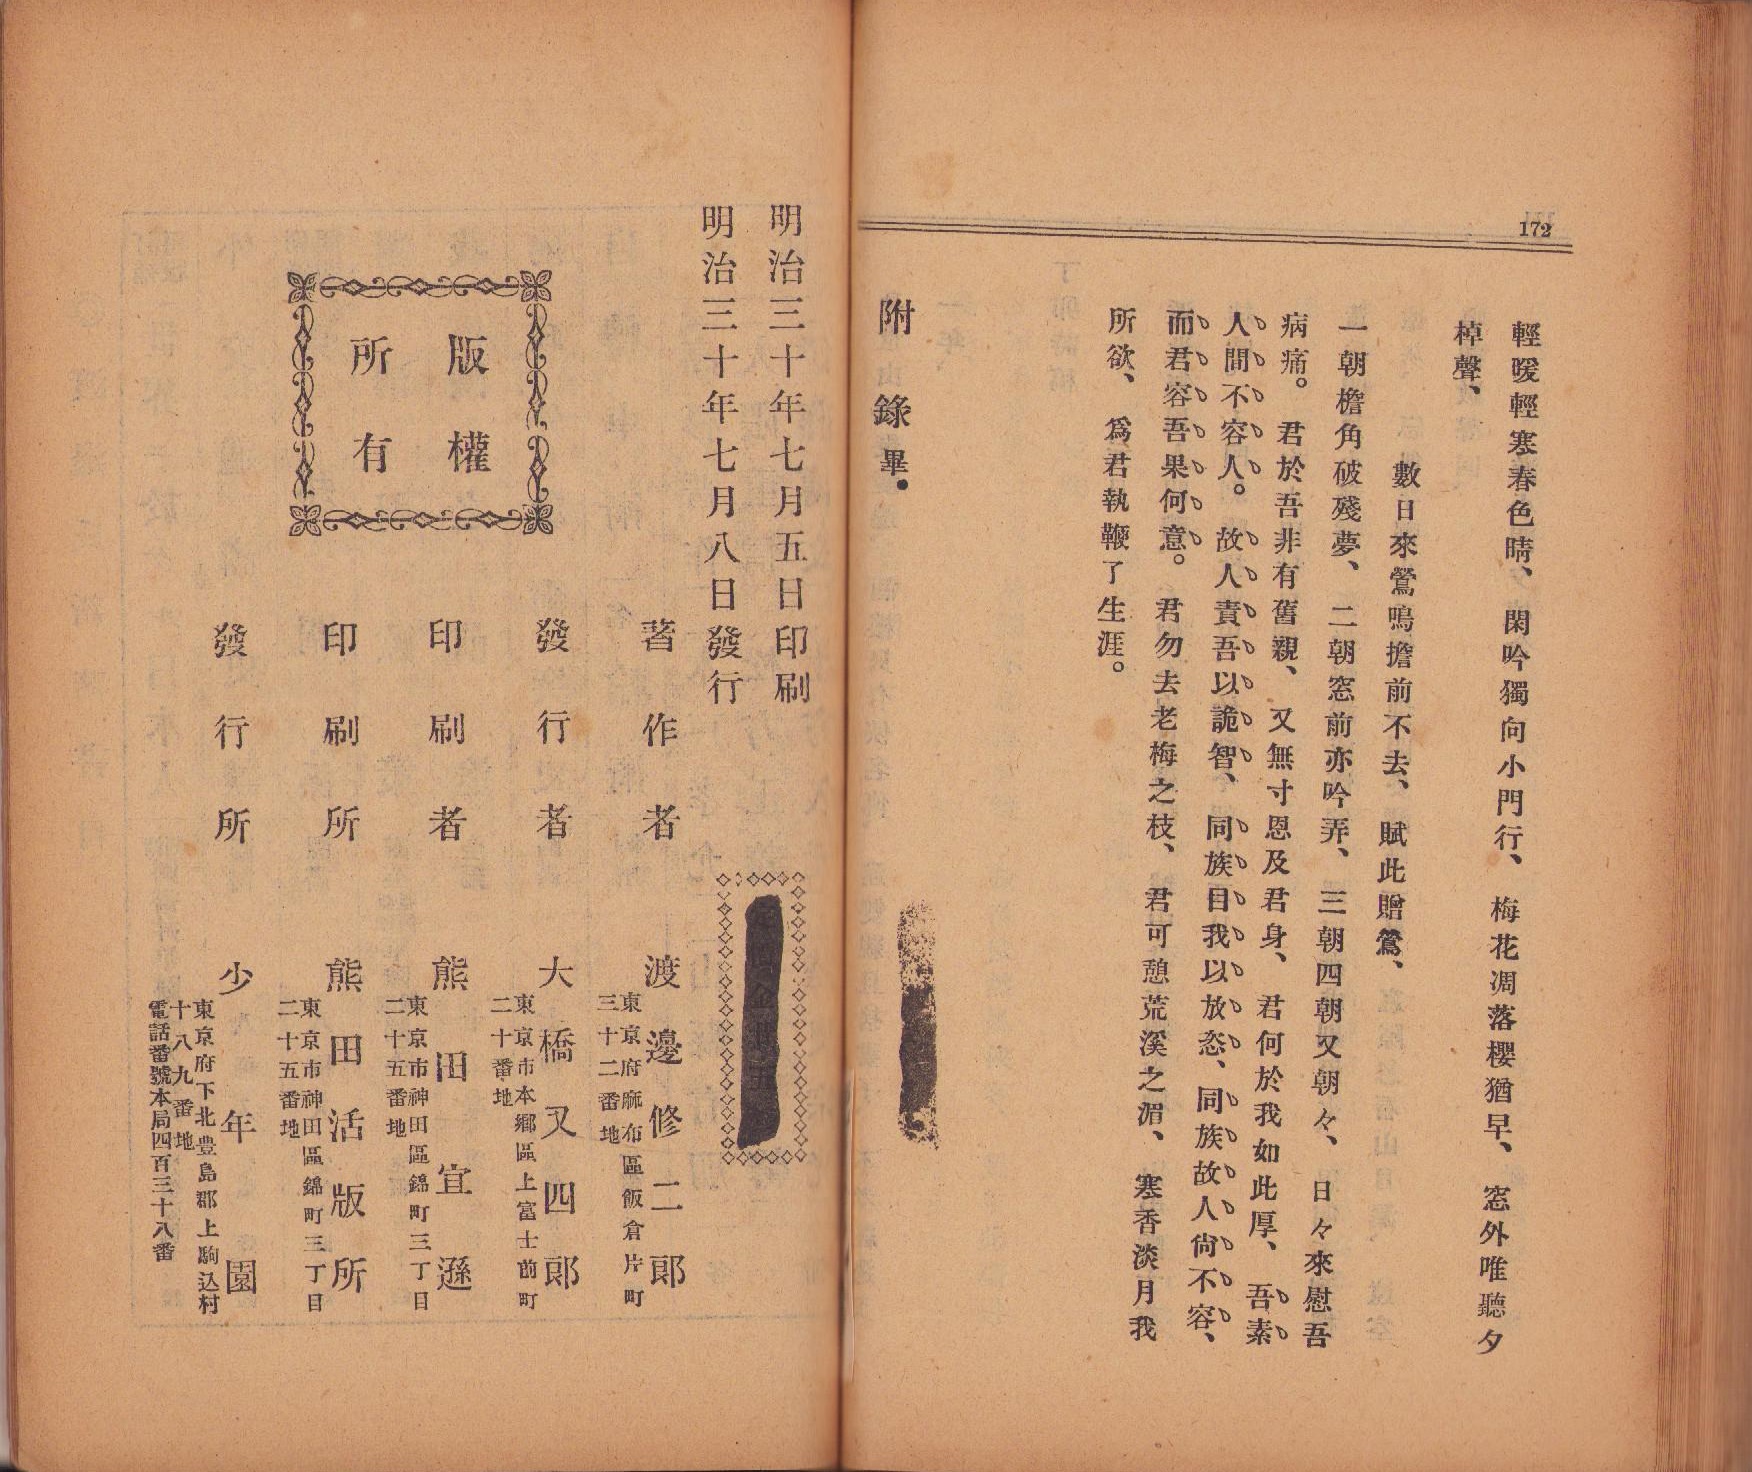 172
輕暖輕寒春色晴、閑吟獨向小門行、梅花凋落櫻猶早、窓外唯聽夕
棹聲、
數日來鶯鳴擔前不去、賦此贈鶯、
一朝檐角破殘夢、二朝窓前亦吟弄、三朝四朝又朝々、日々來慰吾
病痛。君於吾非有舊親、又無寸恩及君身、君何於我如此厚、吾素
人間不容人。故人責吾以詭智、同族目我以放恣、同族故人尙不容、
而君容吾果何意。君勿去老梅之枝、君可憩荒溪之湄、寒香淡月我
所欲、爲君執鞭了生涯。
附錄畢。
明治三十年七月五日印刷
明治三十年七月八日發行
版權
所有
著作者 渡邊修二郎
東京府麻布區飯倉片町
三十二番地
發行者 大橋又四郎
東京市本鄉區上富士前町
二十番地
印刷者 熊田宜遜
東京市神田區錦町三丁目
二十五番地
印刷所 熊田活版所
東京市神田區錦町三丁目
二十五番地
發行所 少年園
東京府下北豊島郡上駒込村
十八九番地
電話番號本局四百三十八番